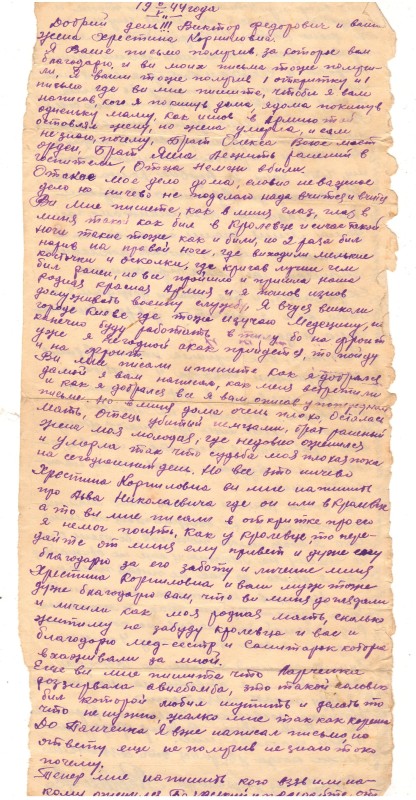 19 5/V 44 года
Добрий день!!! Виктор Федорович и ваш
жена Христина Корниловна.
Я Ваше письмо получив, за которе вам
благодарю, и ви мои письма тоже получи-
ли, я ваши тоже получив 1 открытку и 1
письмо где ви мне пишите, чтоби я вам
написав, кого я покинув дома, я дома покинув
одиньку маму, как ишов в армию то
оставляв жену, но жена умерла, и сам
не знаю, почему, Брат Олекса Воює маєт
орден, Брат Яша Лежить раненій в
госпитале, Отца Немци вбили.
Отакое мое дело дома, словно не важное
дело но ничево не поделаєш надо
Ви мне пишете, как в миня глаз, глаз в
миня такой как бил в Кролевце и сичас такой
ноги такие тоже как и били, но 2 раза бил
на правой ноге, где виходили мелькие
косточки и осколки, где лучши чем
бил даже, но все пройшло и пришла наша
родная красная Армия и я пошов ищов
дослуживать военну службу, Я
городе Киеве где тоже изучаю Медецину, и
канечно буду работать в тилу, бо на фронт
уже я негодной а как пройдется, то пойду
и на фронт.
Ви мне писали и пишите как я добрался
домой я вам написав, как меня встретили
и как я добрался все я вам описав у
письме. Но в миня дома очень плохо, Осталась
мать, отець убитый немцами, брат раненый
жена моя молодая, где недавно оженился
и умерла так что судьба моя плохая пока
на сегодняшний день. Но все это ничево
Христина Корниловна ви мне напишить
про Льва Николаевича где он или в Кролевце
а то ви мне писали в открытке про ево
я немог понять. Как у кролевце то пере-
дайте от миня ему привет и дуже ему
благодарю за его заботу и личение миня
Христина Корниловна и ваш муж тоже
дуже благодарю вам, что ви миня доглядали
и личили как моя родная мать, сколько
житиму не забуду Кролевца и вас и
благодарю мед-сестр и Санитарок которе
вхаживали за мной.
Еще ви мне пишите что Марченка
розирвала авиабомба, это такой
бил которой любил шутить и делать то
что не нужно, жалко мне так как
До Панченка Я вже написал письмо, но
ответу еще не получив не знаю тоже
почему.
Тепер мне напишить кого взяв или на